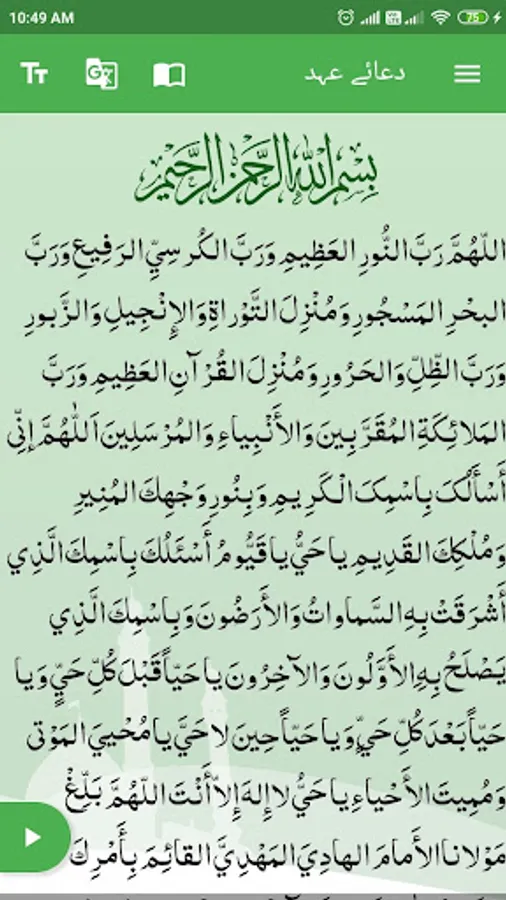 10:49 AM
75
دعائے عہد
بِسْمِ اللهِ الرَّحْمٰنِ الرَّحِيْمِ
اللّهُمَّ رَبَّ النُّورِ العَظِيمِ وَرَبَّ الكُرسِيِّ الرَفِيعِ وَرَبَّ
البحْرِ المَسْجُورِ وَمُنْزِلَ التَّوْراةِ وَالإنْجيلِ وَالزَّبورِ
وَرَبَّ الظِّلِّ وَالحَرُورِ وَمُنْزِلَ القُرْآنِ العَظِيمِ وَرَبَّ
المَلائِكَةِ المُقَرَّبِينَ وَالأَنْبِياءِ وَالمُرْسَلِينَ اَللّٰهُمَّ إنِّي
أَسْأَلُكَ بِاسْمِكَ الْكَرِيمِ وَبِنُورِ وَجْهِكَ المُنِيرِ
وَمُلْكِكَ القَدِيمِ ياحَيُّ ياقَيُّومُ أَسْئَلُكَ بِاسْمِكَ الَّذِي
أَشْرَقَتْ بِهِ السَّماواتُ وَالأَرَضُونَ وَبِاسْمِكَ الَّذِي
يَصْلَحُ بِهِ الأَوَّلُونَ وَالآخِرُونَ ياحَيّاً قَبْلَ كُلِّ حَيٍّ وَيا
حَيّاً بَعْدَ كُلِّ حَيٍّ وَياحَيّاً حِينَ لاحَيَّ يامُحْييَ المَوْتى
وَمُمِيتَ الأَحْياءِ ياحَيُّ لا إِلهَ إِلاّ أَنْتَ اللّهُمَّ بَلِّغْ
مَوْلانا الأمامَ الهادِيَ المَهْدِيَّ القائِمَ بِأَمْرِكَ